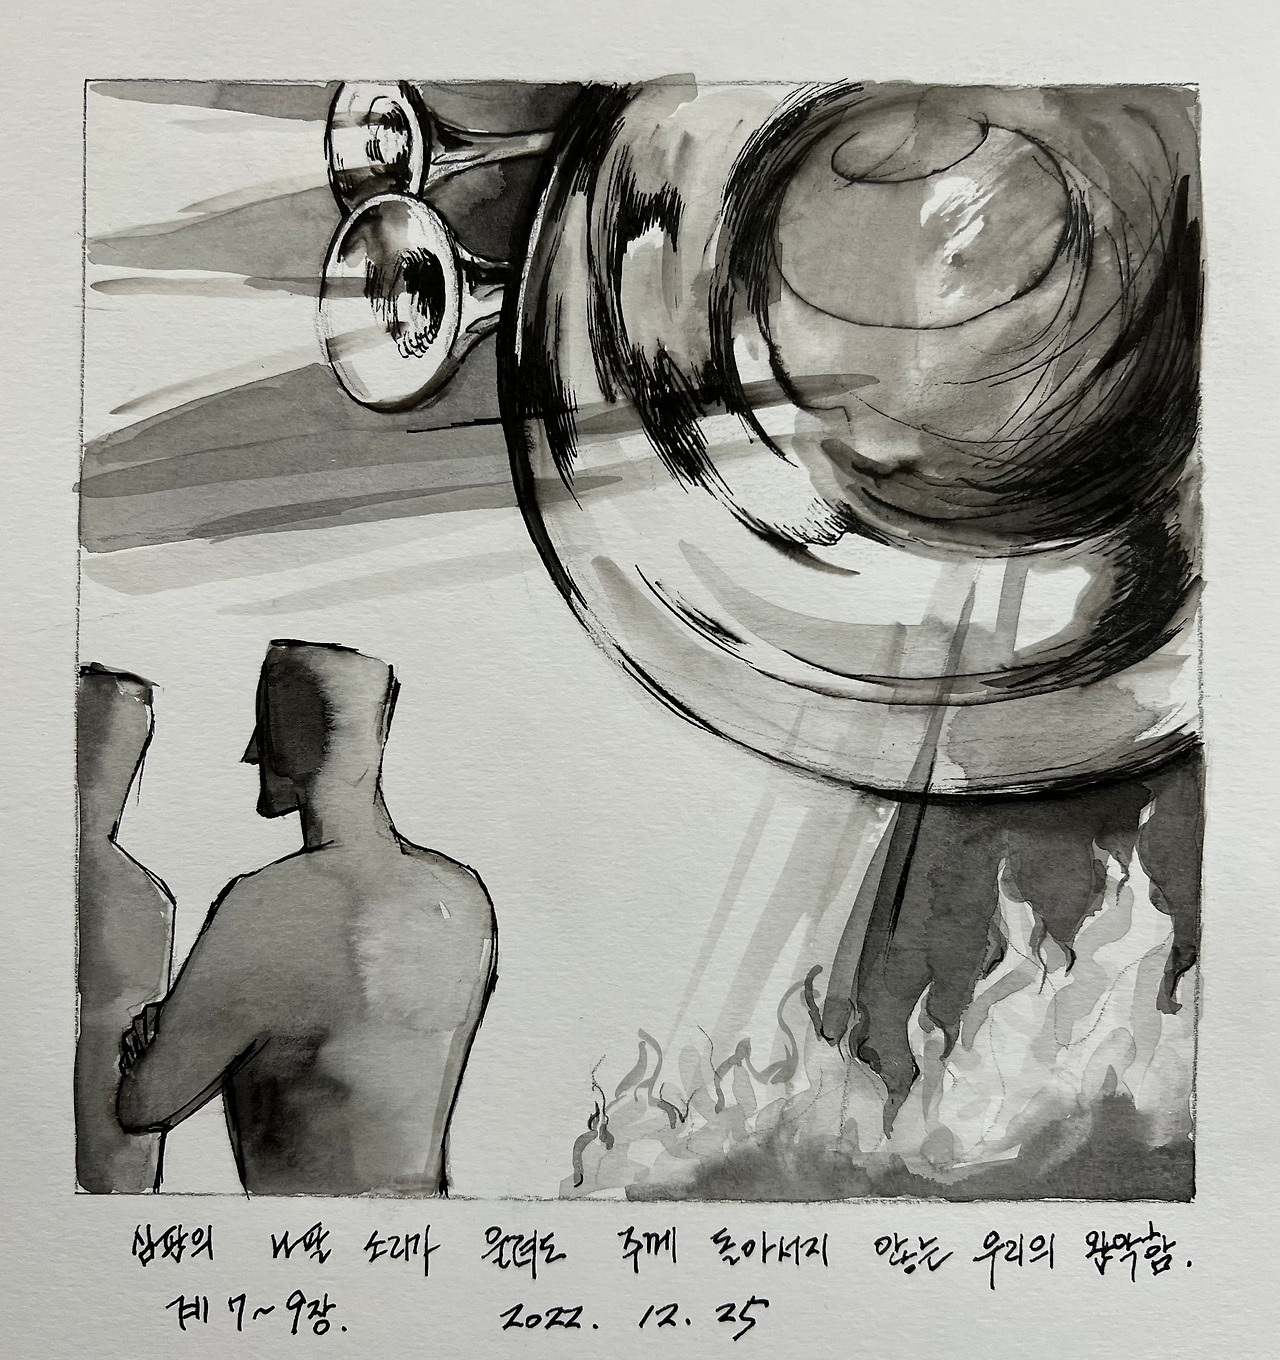 심판의 나팔 소리가 울려도 주께 돌아서지 않는 우리의 완악함.
계 7~9장. 2022. 12. 25